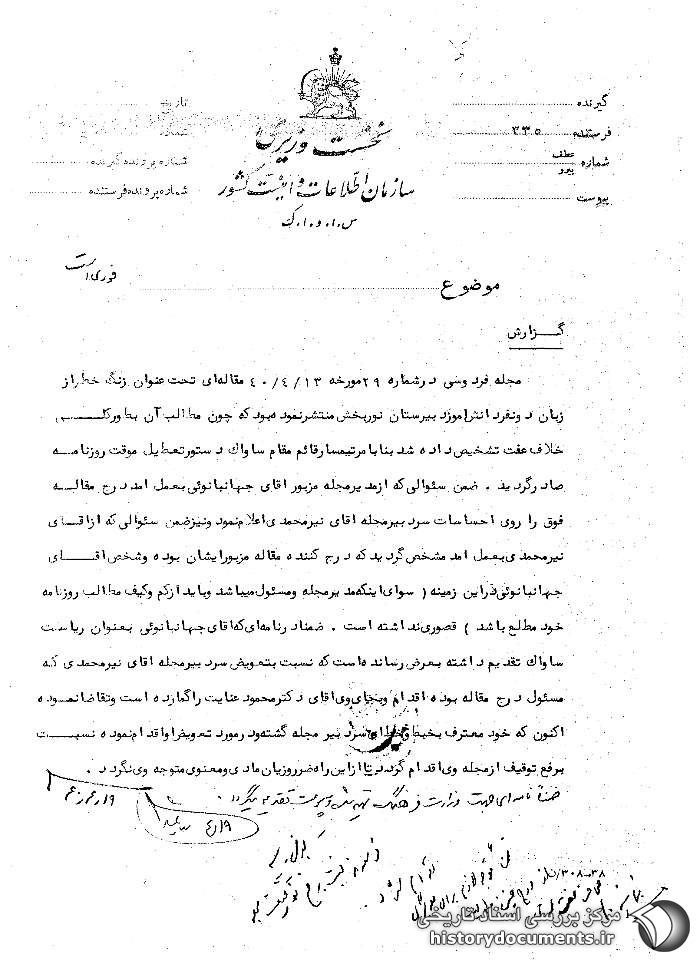 نخست وزیری
سازمان اطلاعات و امنیت کشور
س.ا.و.ا.ک
گیرنده
فرستنده ۳۳۵
شماره عطف پیرو
پیوست
تاریخ
شماره
شماره پرونده گیرنده
شماره پرونده فرستنده
موضوع
فوری است
گزارش
مجله فردوسی در شماره ۲۹ مورخه ۴۰/۴/۱۳ مقاله‌ای تحت عنوان زنگ خطر از
زبان دونفر دانش‌آموز دبیرستان نوربخش منتشر نموده بود که چون مطالب آن بطور کلی
خلاف عفت تشخیص داده شد بنا بامر تیمسار قائم مقام ساواک دستور تعطیل موقت روزنامه
صادر گردید . ضمن سئوالی که از مدیر مجله مزبور آقای جهانبانوئی بعمل امد درج مقاله
فوق را روی احساسات سردبیر مجله آقای نیرمحمدی اعلام نمود و نیز ضمن سئوالی که از اقای
نیرمحمدی بعمل امد مشخص گردید که درج کننده مقاله مزبور ایشان بوده و شخص اقای
جهانبانوئی در این زمینه ( سوای اینکه مدیر مجله و مسئول میباشد و باید از کم و کیف مطالب روزنامه
خود مطلع باشد ) قصوری نداشته است . ضمنا در نامه‌ای که اقای جهانبانوئی بعنوان ریاست
ساواک تقدیم داشته بعرض رسانده است که نسبت بتعویض سردبیر مجله آقای نیرمحمدی که
مسئول درج مقاله بوده اقدام و بجای وی اقای دکتر محمود عنایت را گمارده است و تقاضا نموده
اکنون که خود معترف بخبط و خطای سردبیر مجله گشته و در مورد تعویض او اقدام نموده نسبت
برفع توقیف از مجله وی اقدام گردد تا از این راه ضرر و زیان مادی و معنوی متوجه وی نگردد .
ضمنا نامه‌ای جهت وزارت فرهنگ تهیه شده و پیوست تقدیم میگردد .
۱۹/۴
۳۰۸-۳۸
مرکز بررسی اسناد تاریخی
historydocuments.ir